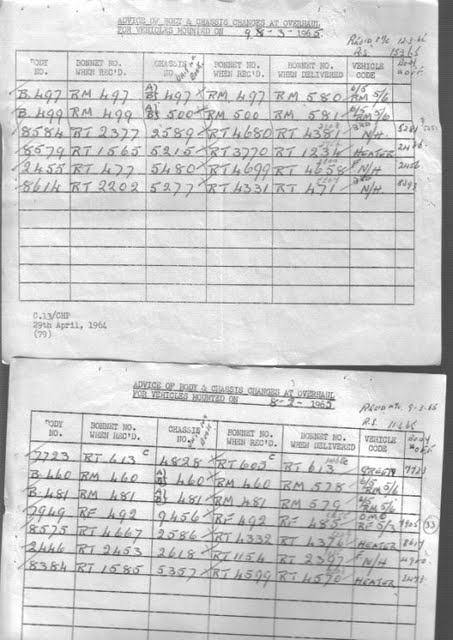 ADVICE OF BODY & CHASSIS CHANGES AT OVERHAUL
FOR VEHICLES MOUNTED ON 9 8-3-1965
BODY NO. BONNET NO. WHEN REC'D. CHASSIS NO. BONNET NO. WHEN REC'D. BONNET NO. WHEN DELIVERED VEHICLE CODE Body
B.497 RM 497 A) B) 497 RM 497 RM 580 6/5 RM 5/6
B.499 RM 499 A) B) 500 RM 500 RM 581 6/5 RM 5/6
8584 RT 2377 2589 RT 4680 RT 4381 3RD N/H
8579 RT 1565 5215 RT 3770 RT 1234 HEATER
2455 RT 477 5480 RT 4699 RT 4658 N/H 2456
8614 RT 2202 5277 RT 4331 RT 471 3RD N/H
C.13/CHP
29th April, 1964
(79)
ADVICE OF BODY & CHASSIS CHANGES AT OVERHAUL
FOR VEHICLES MOUNTED ON 8-2-1965
BODY NO. BONNET NO. WHEN REC'D. CHASSIS NO. BONNET NO. WHEN REC'D. BONNET NO. WHEN DELIVERED VEHICLE CODE Body
7723 RT 613 C 4828 RT 603 C RT 613 GREEN 7723
B.460 RM 460 A) B) 460 RM 460 RM 578 6/5 RM 5/6
B.481 RM 481 A) B) 481 RM 481 RM 579 6/5 RM 5/6
7949 RF 492 9456 RF 492 RF 485 RF 5/3 33
8575 RT 4667 2586 RT 4332 RT 4376 HEATER
2446 RT 2453 2618 RT 1154 RT 2397 N/H
8384 RT 1585 5357 RT 4599 RT 4570 HEATER